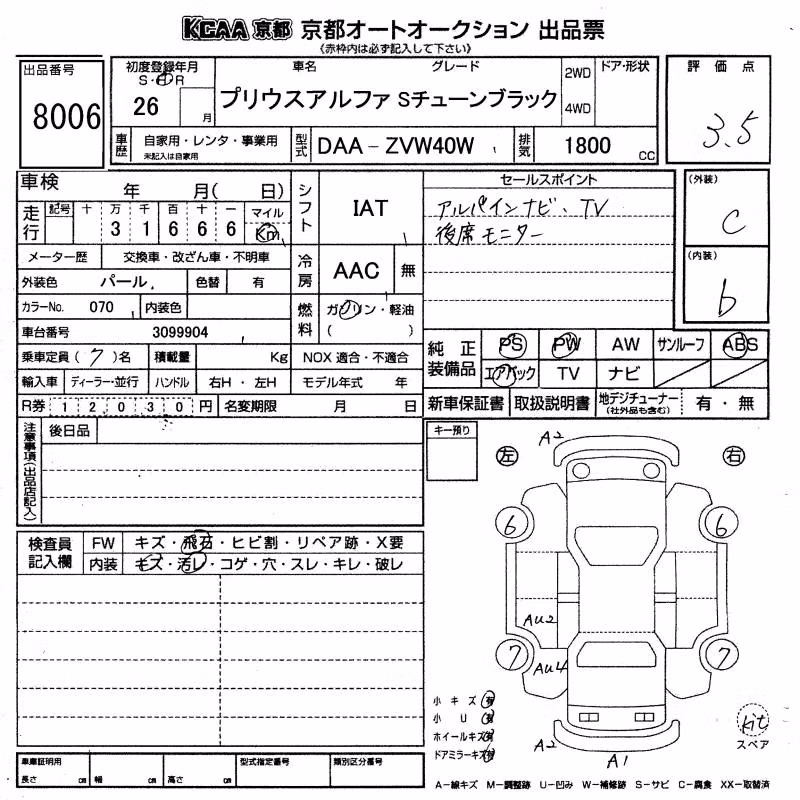 KCAA 京都 京都オートオークション 出品票
《赤枠内は必ず記入して下さい》
出品番号
8006
初度登録年月
S・H・R
26 月
車名 グレード
プリウスアルファ Sチューンブラック
2WD
4WD
ドア・形状
評価点
3.5
車歴
自家用・レンタ・事業用
未記入は自家用
型式
DAA-ZVW40W
排気
1800 CC
車検 年 月( 日)
走行
記号 十 万 千 百 十 一 マイル
3 1 6 6 6 Km
メーター歴 交換車・改ざん車・不明車
外装色 パール 色替 有
カラーNo. 070 内装色
車台番号 3099904
乗車定員(7)名 積載量 Kg
輸入車 ディーラー・並行 ハンドル 右H・左H
R券 1 2 0 3 0 円 名変期限 月 日
シフト IAT
冷房 AAC 無
燃料 ガソリン・軽油
( )
NOX 適合・不適合
モデル年式 年
セールスポイント
アルパインナビ、TV
後席モニター
(外装)
C
(内装)
b
純正装備品
PS PW AW サンルーフ ABS
エアバック TV ナビ
新車保証書 取扱説明書 地デジチューナー
(社外品も含む)
有・無
注意事項(出品店記入)
後日品
検査員記入欄
FW キズ・飛石・ヒビ割・リペア跡・X要
内装 キズ・汚レ・コゲ・穴・スレ・キレ・破レ
キー預り
左 右
A2
6 6
AU2
7 7
AU4
A2
A1
小キズ 有
小U 有
ホイールキズ 有
ドアミラーキズ 有
kit
スペア
車庫証明用
長さ cm 幅 cm 高さ cm
型式指定番号 類別区分番号
A-線キズ M-調整跡 U-凹み W-補修跡 S-サビ C-腐食 XX-取替済